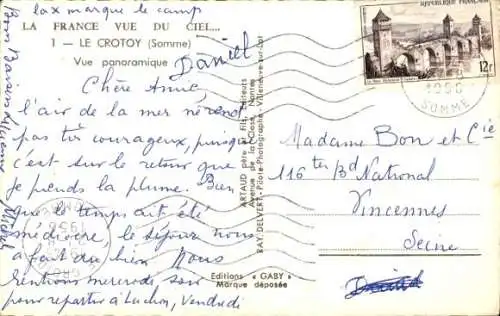 tax marque de camp
LA FRANCE VUE DU CIEL...
1 - LE CROTOY (Somme)
Vue panoramique
Daniel
Chère Amie,
l'air de la mer ne rend
pas très courageux, puisque
c'est sur le retour que
je prends la plume. Bien
que le temps ait été
médiocre, le séjour nous
a fait du bien. Nous
rentrions mercredi soir
pour repartir à Luchon, Vendredi
Bons Baisers
Michel
ARTAUD père et Fils, Éditeurs
Avenue de la Close, Nantes
RAY DELVERT - Pilote-Photographe - Villeneuve-sur-Lot
Editions « GABY »
Marque déposée
REPUBLIQUE FRANÇAISE
12f
SOMME
Madame Bon et Cie
116 ter Bd National
Vincennes
Seine